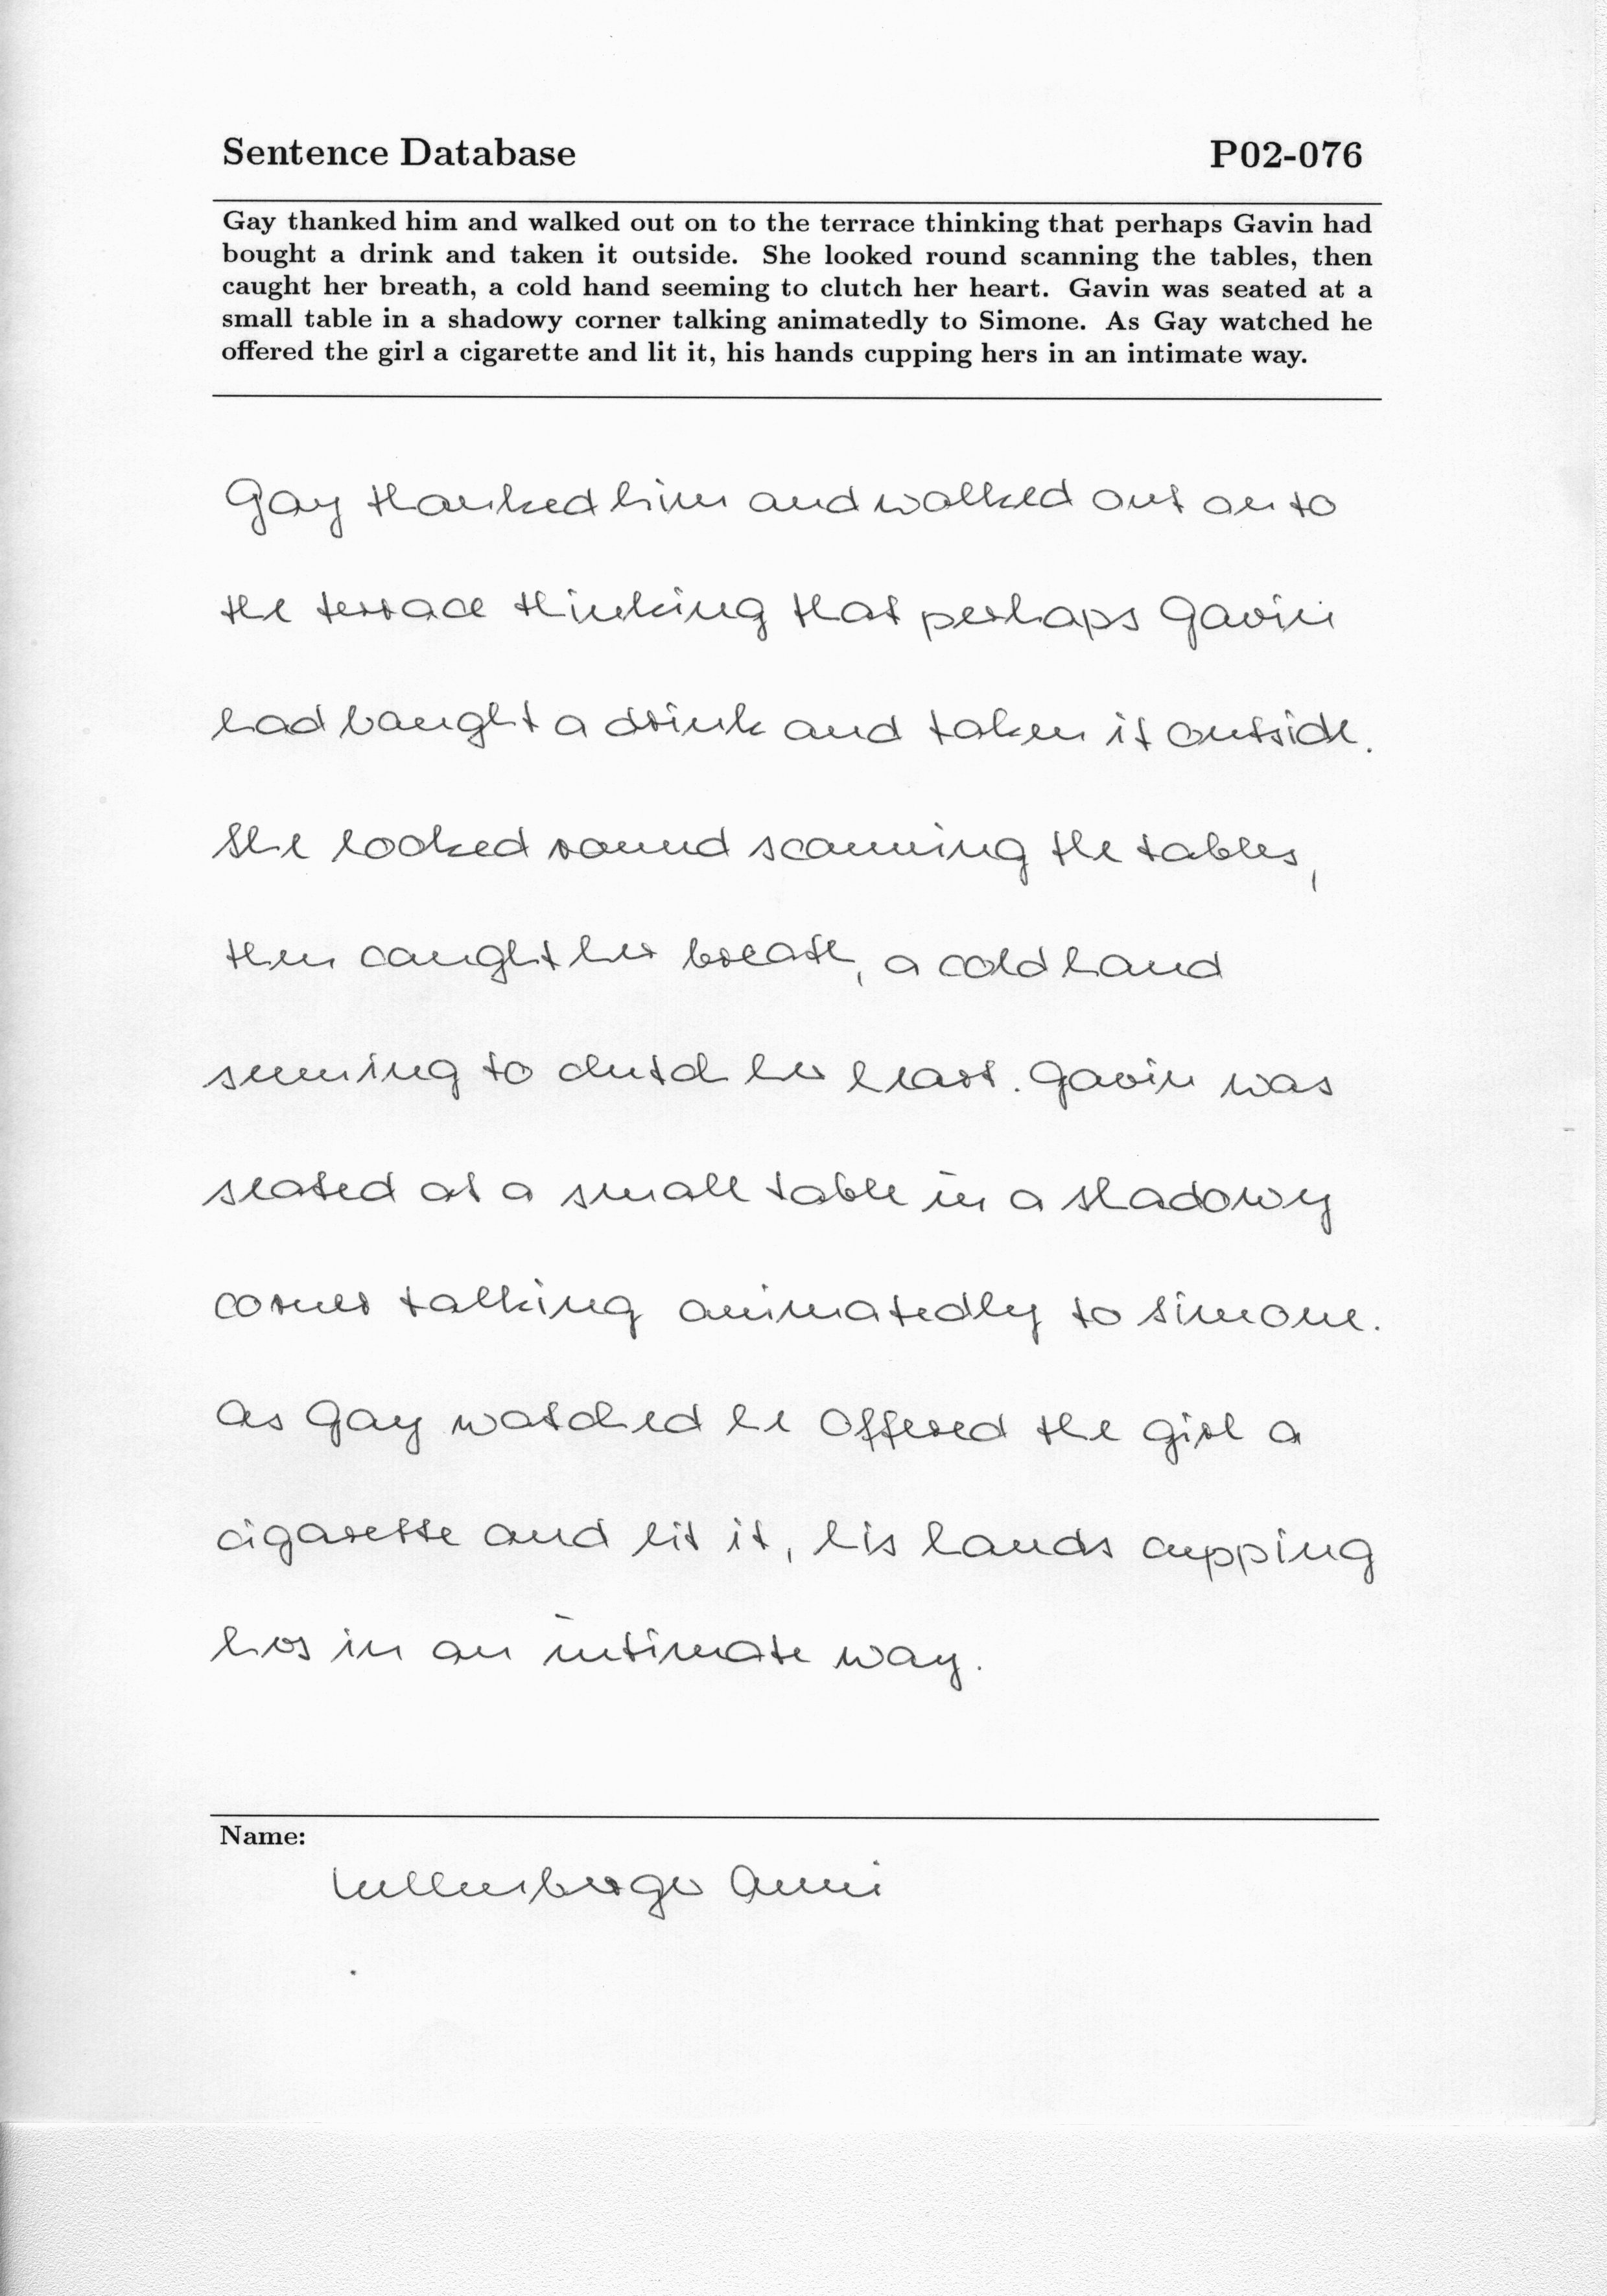 Sentence Database P02-076
Gay thanked him and walked out on to the terrace thinking that perhaps Gavin had
bought a drink and taken it outside. She looked round scanning the tables, then
caught her breath, a cold hand seeming to clutch her heart. Gavin was seated at a
small table in a shadowy corner talking animatedly to Simone. As Gay watched he
offered the girl a cigarette and lit it, his hands cupping hers in an intimate way.
Gay thanked him and walked out on to
the terrace thinking that perhaps Gavin
had bought a drink and taken it outside.
She looked round scanning the tables,
then caught her breath, a cold hand
seeming to clutch her heart. Gavin was
seated at a small table in a shadowy
corner talking animatedly to Simone.
As Gay watched he offered the girl a
cigarette and lit it, his hands cupping
hers in an intimate way.
Name:
Anni